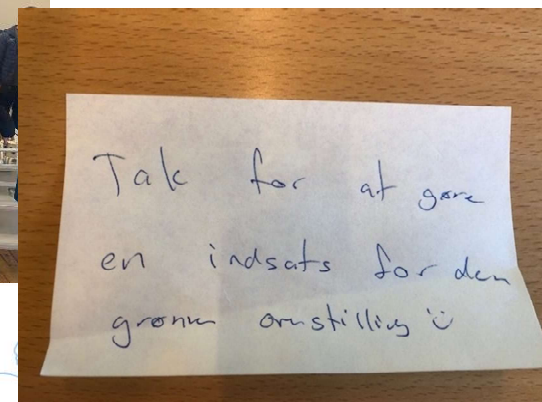 Tak for at gøre
en indsats for den
grønne omstilling ü